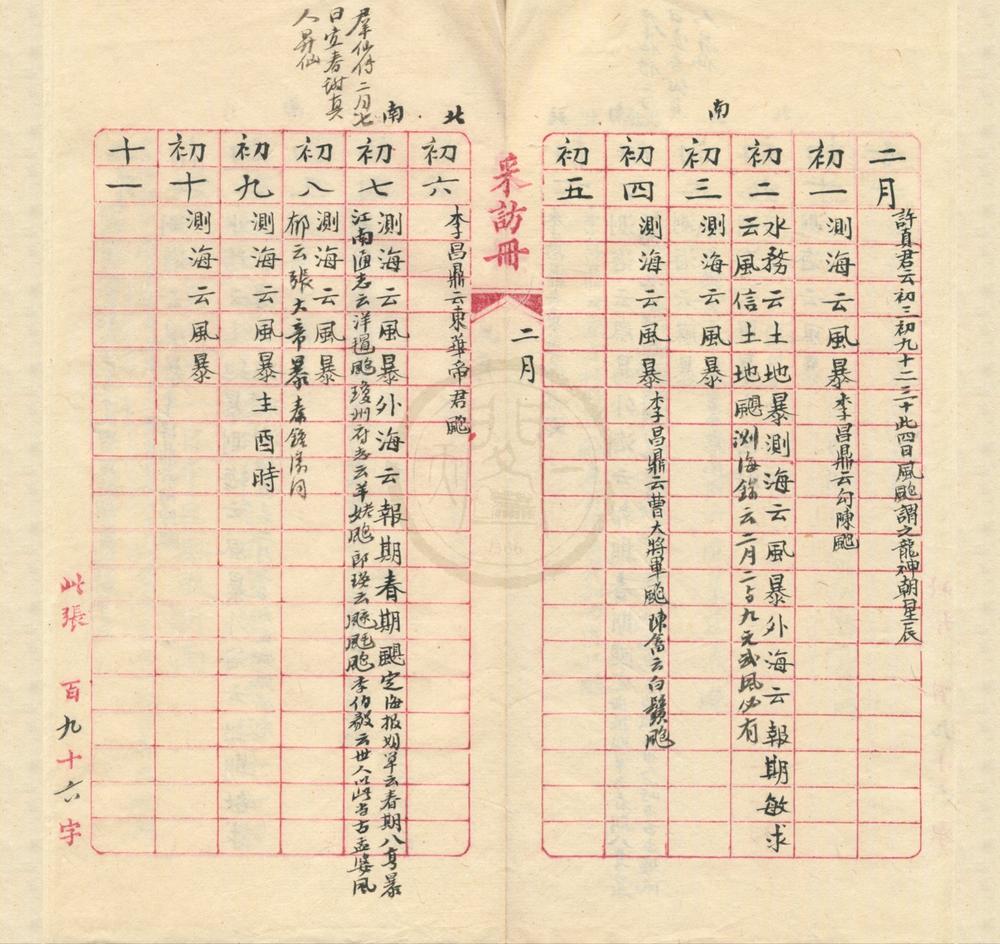 南
二月
許真君云初三初九十二三十此四日風颮謂之龍神朝星辰
初一
測海云風暴李昌鼎云勾陳颮
初二
水務云土地暴測海云風暴外海云報期敏求
云風信土地颶測海錄云二月二占九元或風必有
初三
測海云風暴
初四
測海云風暴李昌鼎云曹大將軍颮陳喬云白鬚颮
初五
采訪冊
二月
北
初六
李昌鼎云東華帝君颮
南
群仙傳二月七
日宜春謝真
人昇仙
初七
測海云風暴外海云報期春期颶定海報期單云春期八方暴
江南通志云洋遇颮瓊州府志云羊姥颮郎瑛云颮颮李伯毅云世人以此當古孟婆風
初八
測海云風暴
郁云張大帝暴
初九
測海云風暴主酉時
初十
測海云風暴
十一
此張 百九十六字